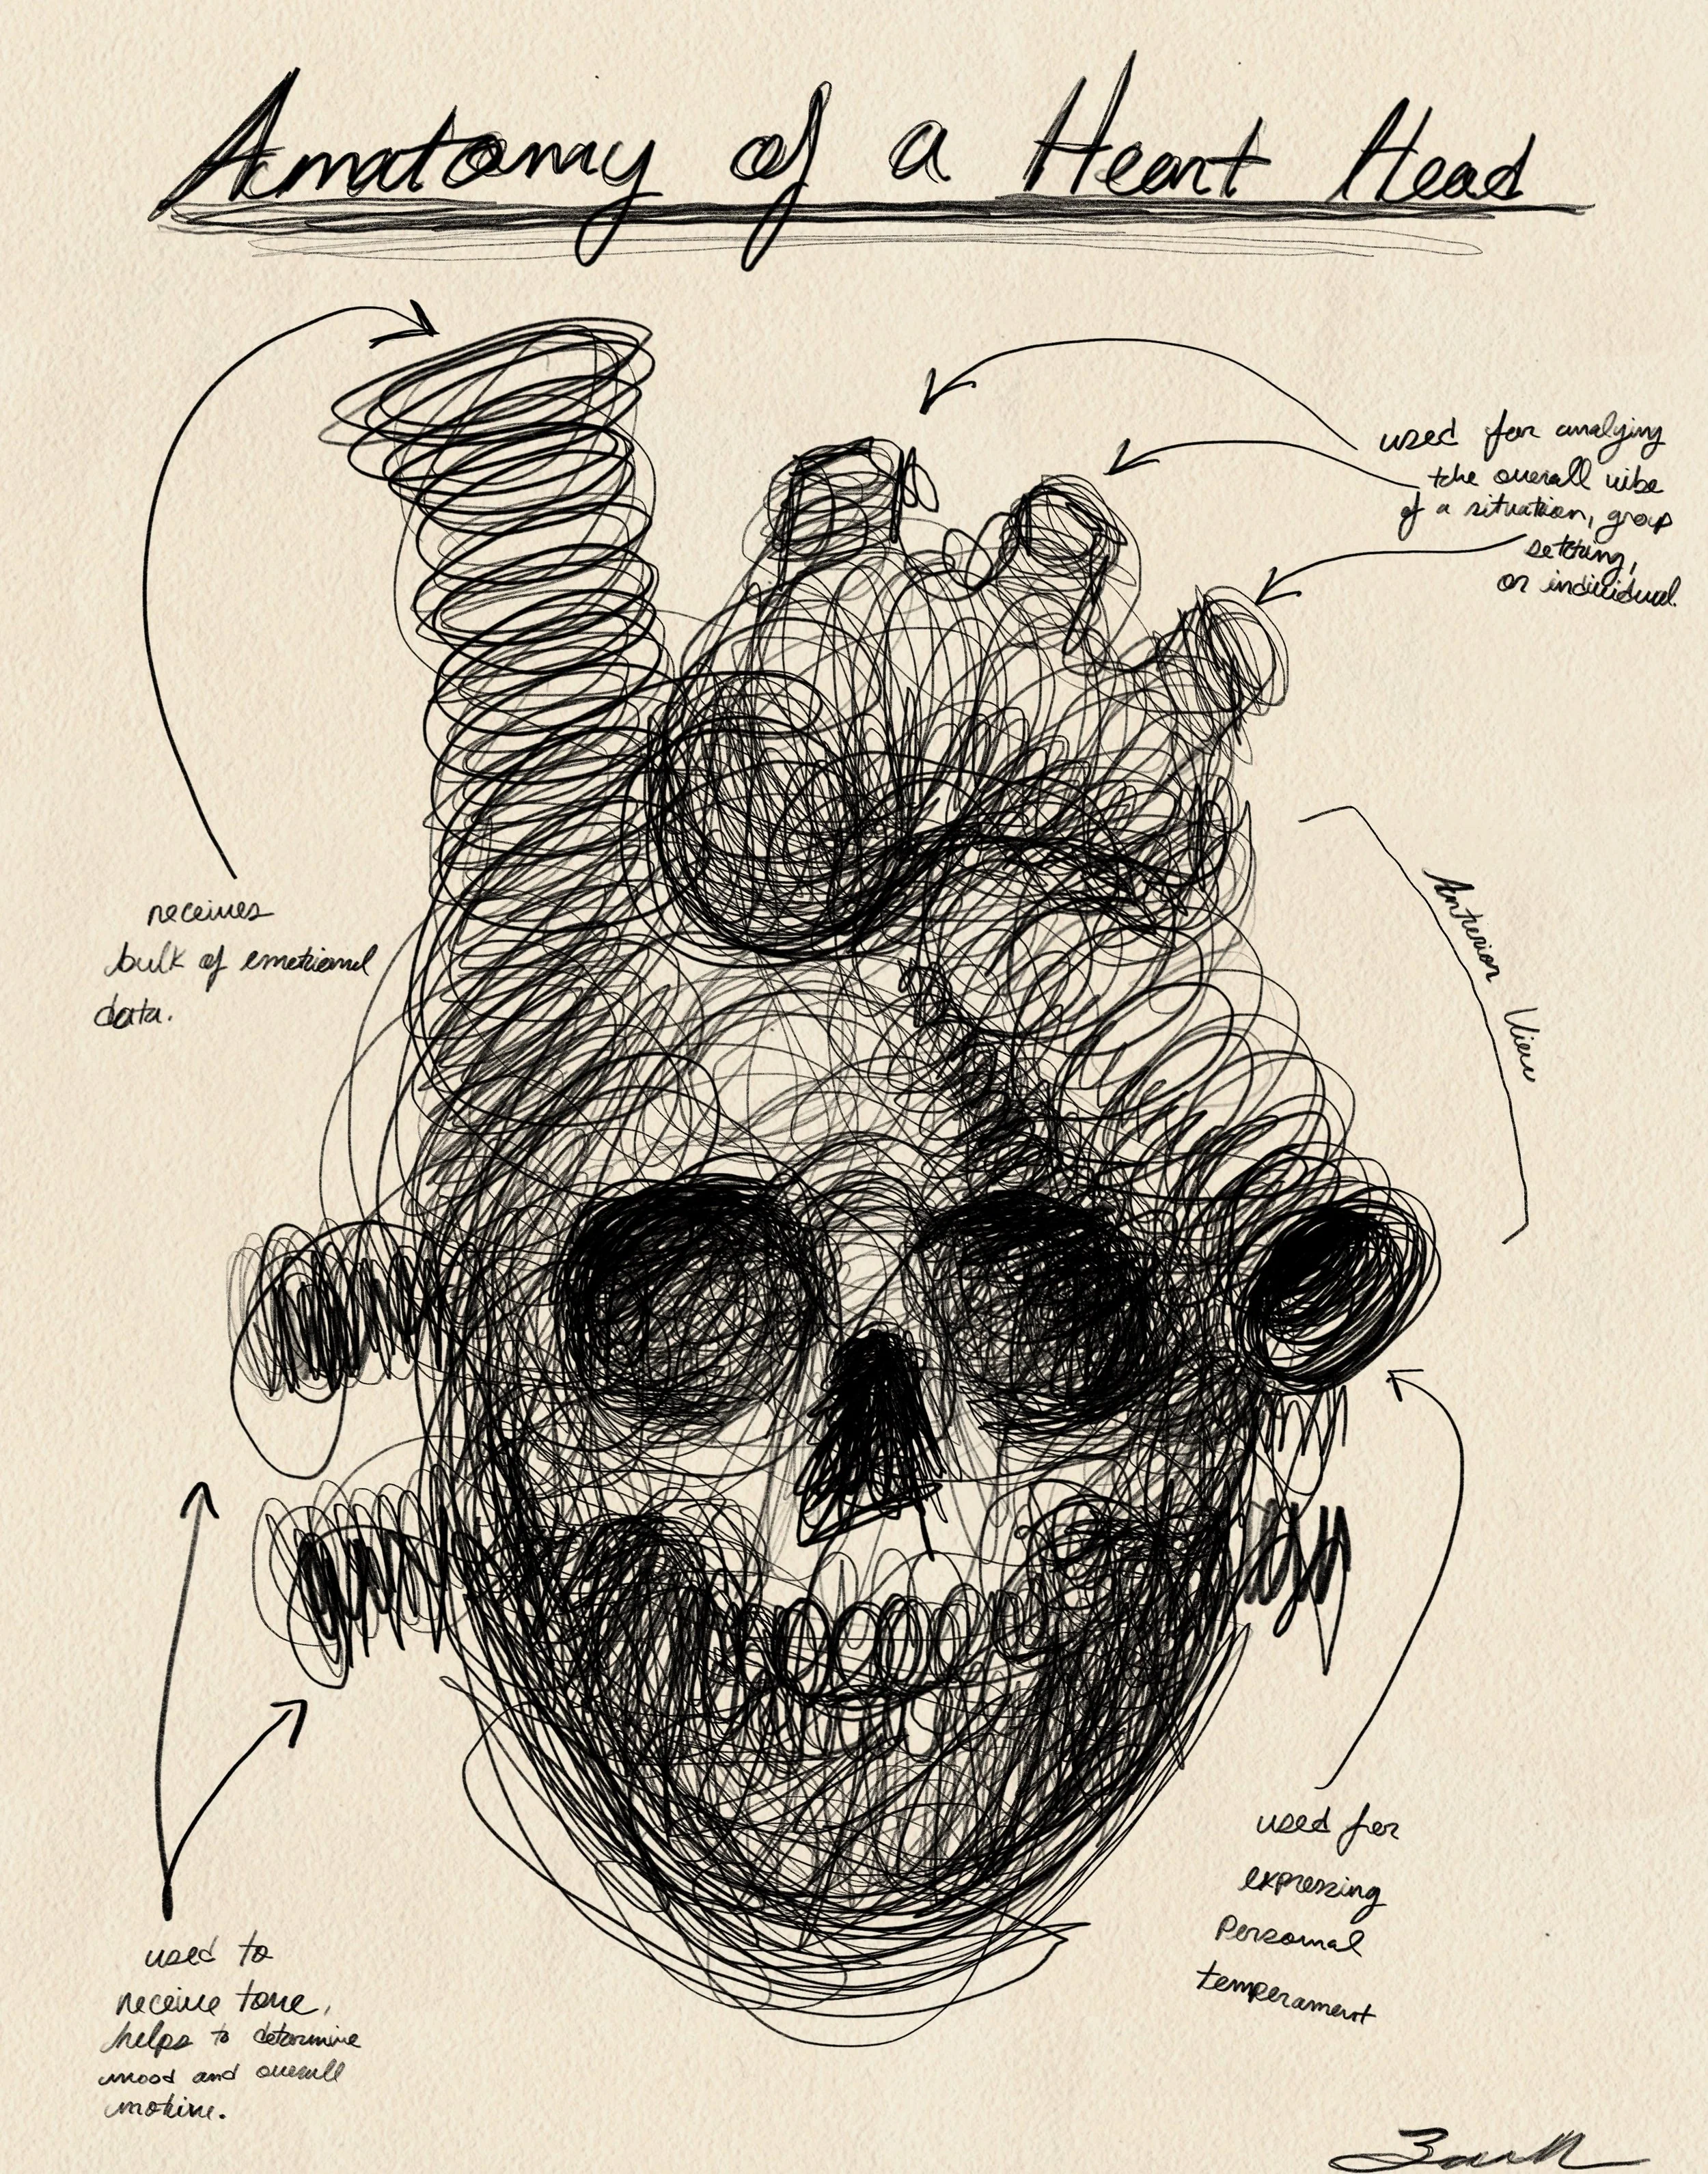 Anatomy of a Heart Head
used for analying
the overall vibe
of a situation, group
setting,
or individual.
receives
bulk of emotional
data.
Anterior View
used for
expressing
Personal
temperament
used to
receive tone,
helps to determine
mood and overall
motive.